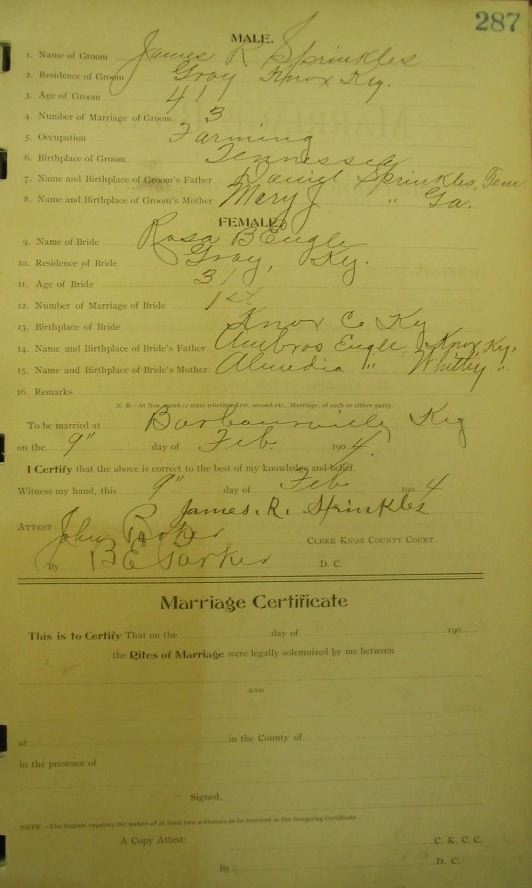 287
MALE.
1. Name of Groom James R Sprinkles
2. Residence of Groom Gray Knox Ky.
3. Age of Groom 41
4. Number of Marriage of Groom 3
5. Occupation Farming
6. Birthplace of Groom Tennessee
7. Name and Birthplace of Groom's Father Daniel Sprinkles, Tenn
8. Name and Birthplace of Groom's Mother Mary " Ga.
FEMALE.
9. Name of Bride Rosa B Engle
10. Residence of Bride Gray, Ky.
11. Age of Bride 31
12. Number of Marriage of Bride 1st
13. Birthplace of Bride Knox Co Ky
14. Name and Birthplace of Bride's Father Ambros Engle, Knox, Ky.
15. Name and Birthplace of Bride's Mother Almedia " Whitley "
16. Remarks
N. B.—At Nos. 4 and 12 state whether first, second etc., Marriage, of each or either party.
To be married at Barbourville Ky
on the 9" day of Feb. 1904
I Certify that the above is correct to the best of my knowledge and belief.
Witness my hand, this 9" day of Feb 1904
James. R. Sprinkles
ATTEST: John Parker CLERK KNOX COUNTY COURT.
By B E Parker D. C.
Marriage Certificate
This is to Certify That on the day of 190
the Rites of Marriage were legally solemnized by me between
AND
at in the County of
in the presence of
Signed,
NOTE.—The Statute requires the names of at least two witnesses to be inserted in the foregoing Certificate.
A Copy Attest: C. K. C. C.
By D. C.